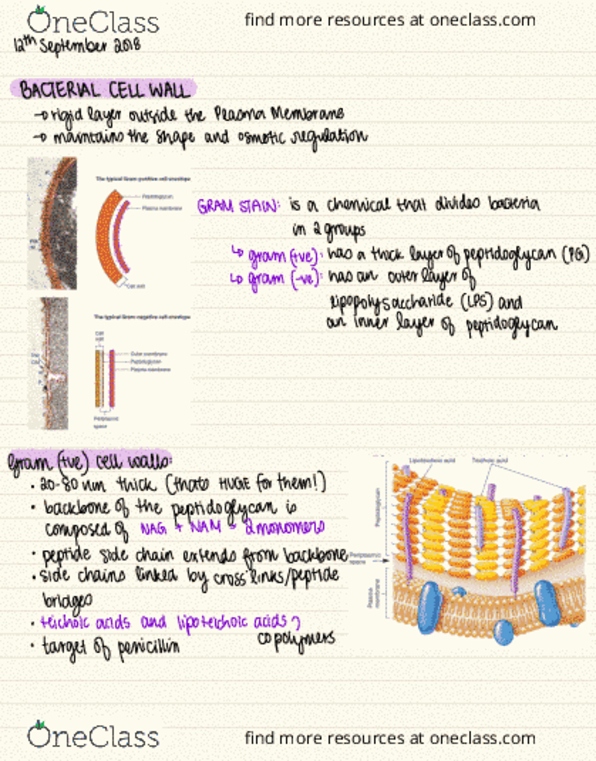 OneClass
find more resources at oneclass.com
12th September 2018
BACTERIAL CELL WALL
→ rigid layer outside the Plasma Membrane
→ maintains the shape and osmotic regulation
The typical Gram-positive cell envelope
Peptidoglycan
Plasma membrane
Cell wall
GRAM STAIN: is a chemical that divides bacteria
in 2 groups
↳ gram (+ve): has a thick layer of peptidoglycan (PG)
↳ gram (-ve): has an outer layer of
lipopolysaccharide (LPS) and
an inner layer of peptidoglycan
The typical Gram-negative cell envelope
Cell wall
Outer membrane
Peptidoglycan
Plasma membrane
Periplasmic
space
gram (+ve) cell walls
• 20-80 nm thick (thats HUGE for them!)
• backbone of the peptidoglycan is
composed of NAG + NAM = 2 monomers
• peptide side chain extends from backbone
• side chains linked by cross links/peptide
bridges
• teichoic acids and lipoteichoic acids
copolymers
• target of penicillin
Lipoteichoic acid
Teichoic acid
Peptidoglycan
Periplasmic
space
Plasma
membrane
OneClass
find more resources at oneclass.com